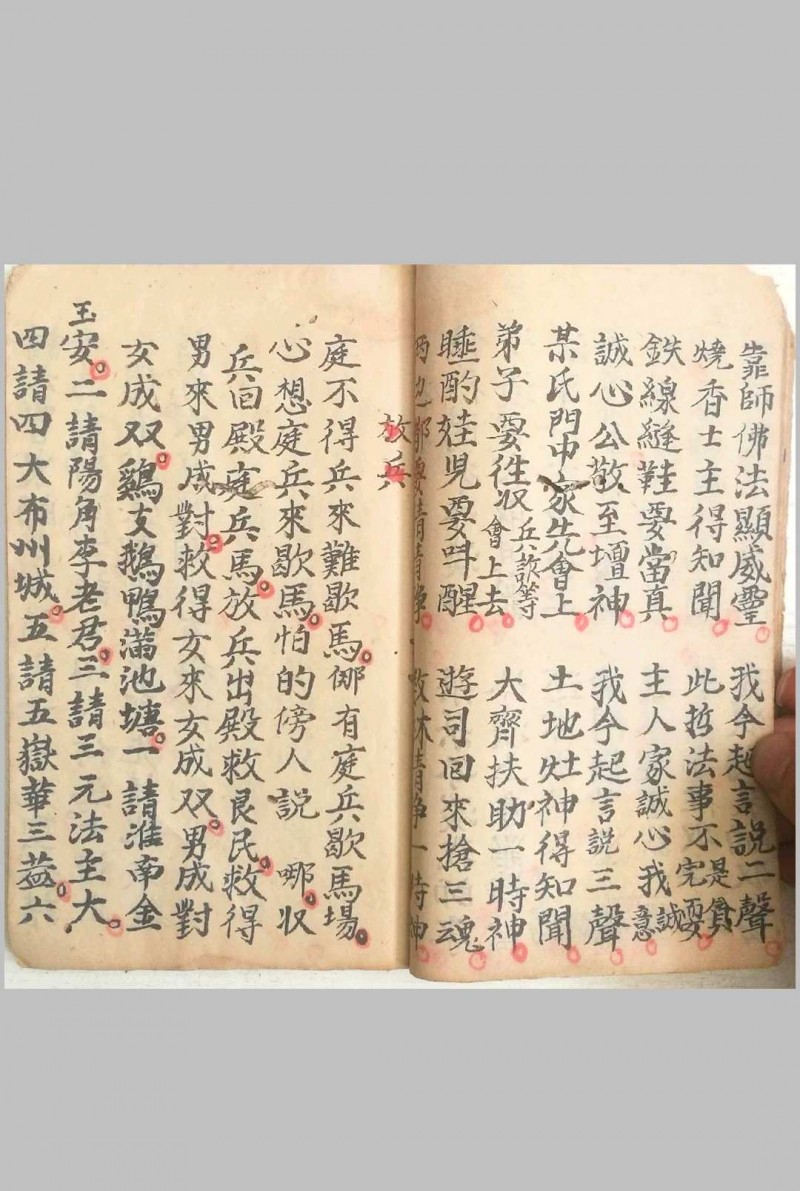 靠師佛法顯威靈 我今起言說二聲
燒香士主得知聞 此哲法事不是貪完要
鉄線縫鞋要當真 主人家誠心我誠意
誠心公敬至壇神 我今起言說三聲
某氏門中家先會上 土地灶神得知聞
弟子要往收會上去兵欵等 大齊扶助一時神
睡酌娃児要呌醒 遊司回來搶三魂
清淨 清淨一時神
放兵
庭不得兵來難歇馬。哪有庭兵歇馬場。
心想庭兵來歇馬。怕的傍人說 哪。収
兵回殿庭兵馬。放兵出殿救良民。救得
男來男成對。救得女來女成双。男成對
女成双。鷄支鵝鴨滿池塘。一請淮南金
玉安。二請陽角李老君。三請三元法主大。
四請四大布州城。五請五嶽華三葢。六